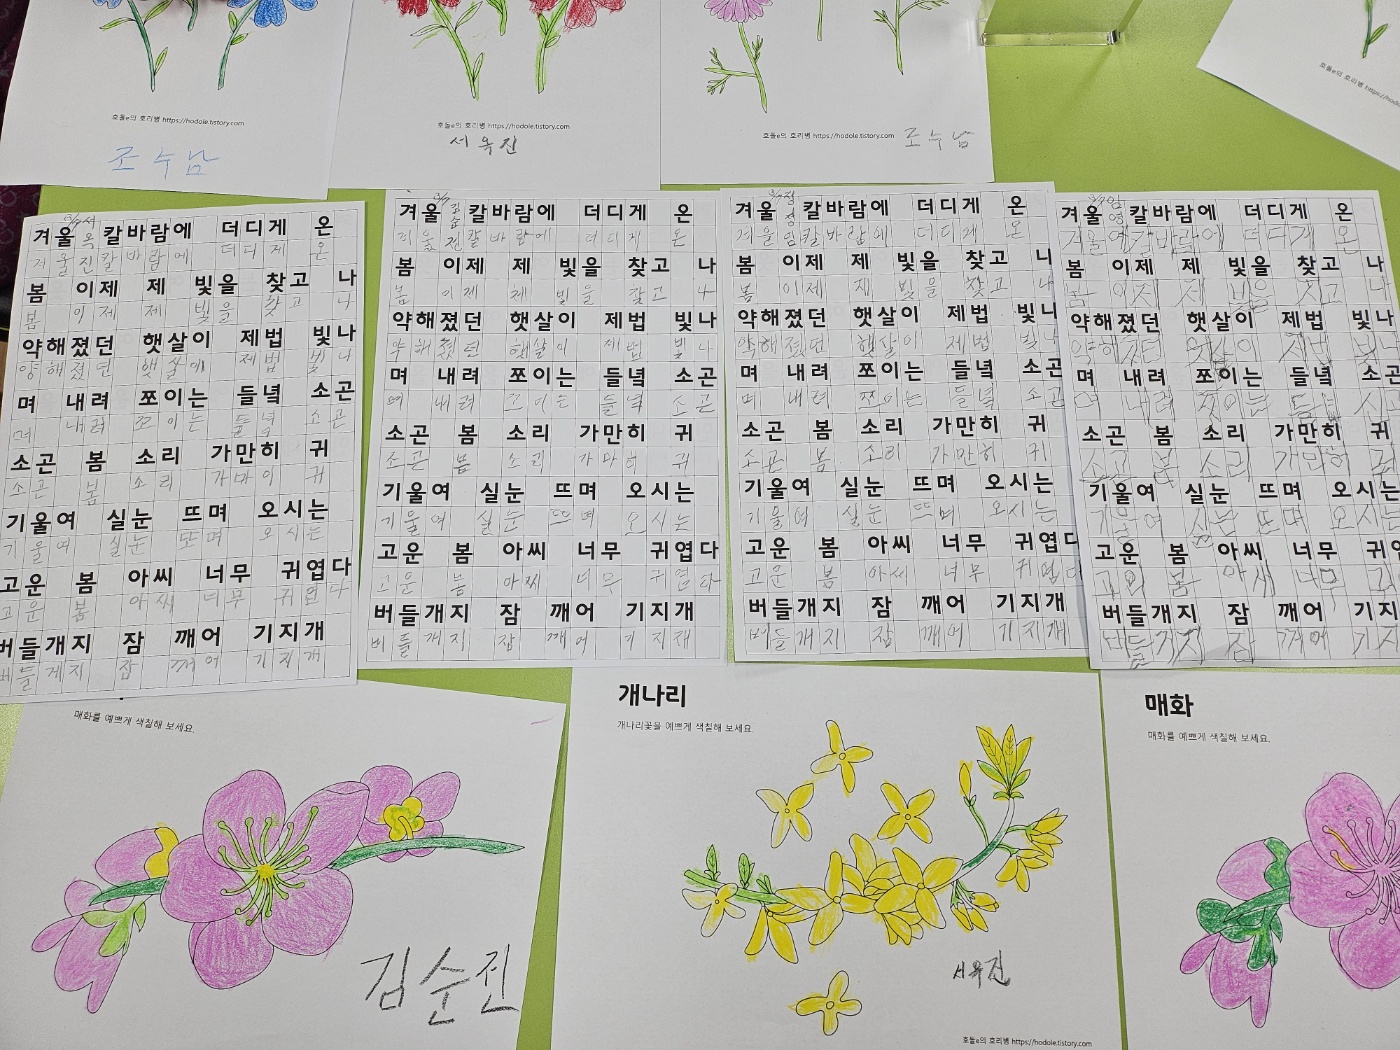 호돌e의 호리병 https://hodole.tistory.com
조수남
호돌e의 호리병 https://hodole.tistory.com
서옥진
호돌e의 호리병 https://hodole.tistory.com
조수남
호돌e의 호리병
겨울 칼바람에 더디게 온
겨울 칼바람에 더디게 온
봄 이제 제 빛을 찾고 나
봄 이제 제 빛을 찾고 나
약해졌던 햇살이 제법 빛나
양해졌던 햇살에 제법 빛나
며 내려 쪼이는 들녘 소곤
며 내려 쪼이는 들녘 소곤
소곤 봄 소리 가만히 귀
소곤 봄 소리 가마이 귀
기울여 실눈 뜨며 오시는
기울여 실눈 또며 오시는
고운 봄 아씨 너무 귀엽다
고운 봄 아씨 너무 귀엽다
버들개지 잠 깨어 기지개
버들게지 잠 깨어 기지개
김순진
겨울 칼바람에 더디게 온
겨울 칼바람에 더디게 온
봄 이제 제 빛을 찾고 나
봄 이제 제 빛을 찾고 나
약해졌던 햇살이 제법 빛나
약해졌던 햇살이 제법 빛나
며 내려 쪼이는 들녘 소곤
며 내려 쪼이는 들녘 소곤
소곤 봄 소리 가만히 귀
소곤 봄 소리 가마히 귀
기울여 실눈 뜨며 오시는
기울여 실눈 뜨며 오시는
고운 봄 아씨 너무 귀엽다
고운 봄 아씨 너무 귀엽다
버들개지 잠 깨어 기지개
버들개지 잠 깨어 기지개
겨울 칼바람에 더디게 온
겨울 칼바람에 더디게 온
봄 이제 제 빛을 찾고 나
봄 이제 제 빛을 찾고 나
약해졌던 햇살이 제법 빛나
약해졌던 햇살이 제법 빛나
며 내려 쪼이는 들녘 소곤
며 내려 쪼이는 들녘 소곤
소곤 봄 소리 가만히 귀
소곤 봄 소리 가만히 귀
기울여 실눈 뜨며 오시는
기울여 실눈 뜨며 오시는
고운 봄 아씨 너무 귀엽다
고운 봄 아씨 너무 귀엽다
버들개지 잠 깨어 기지개
버들개지 잠 깨어 기지개
겨울 칼바람에 더디게 온
겨울 칼바람에 더디게 온
봄 이제 제 빛을 찾고 나
봄 이제 제 빛을 찾고 나
약해졌던 햇살이 제법 빛나
며 내려 쪼이는 들녘 소곤
소곤 봄 소리 가만히 귀
소곤 봄 소리 가만히 귀
기울여 실눈 뜨며 오시는
기울여 실눈 뜨며 오시는
고운 봄 아씨 너무 귀엽
고운 봄 아씨 너무
버들개지 잠 깨어 기지
매화를 예쁘게 색칠해 보세요.
김순진
개나리
개나리꽃을 예쁘게 색칠해 보세요.
서옥진
호돌e의 호리병 https://hodole.tistory.com
매화
매화를 예쁘게 색칠해 보세요.